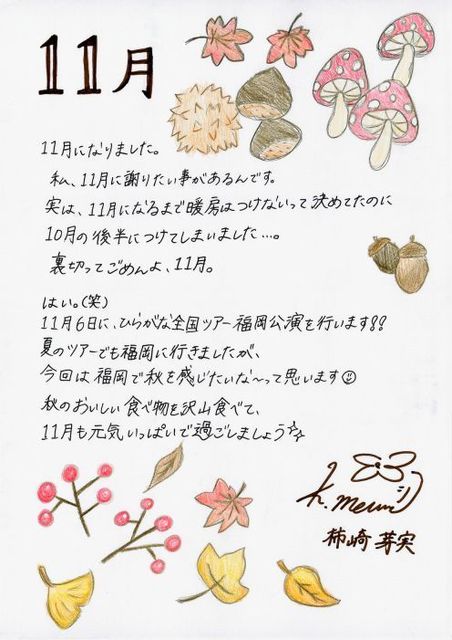 11月
11月になりました。
私、11月に謝りたい事があるんです。
実は、11月になるまで暖房はつけないって決めてたのに
10月の後半につけてしまいました…。
裏切ってごめんよ、11月。
はい。(笑)
11月6日に、ひらがな全国ツアー福岡公演を行います!!
夏のツアーでも福岡に行きましたが、
今回は福岡で秋を感じたいな〜って思います☺
秋のおいしい食べ物を沢山食べて、
11月も元気いっぱいで過ごしましょう☆
柿崎 芽実